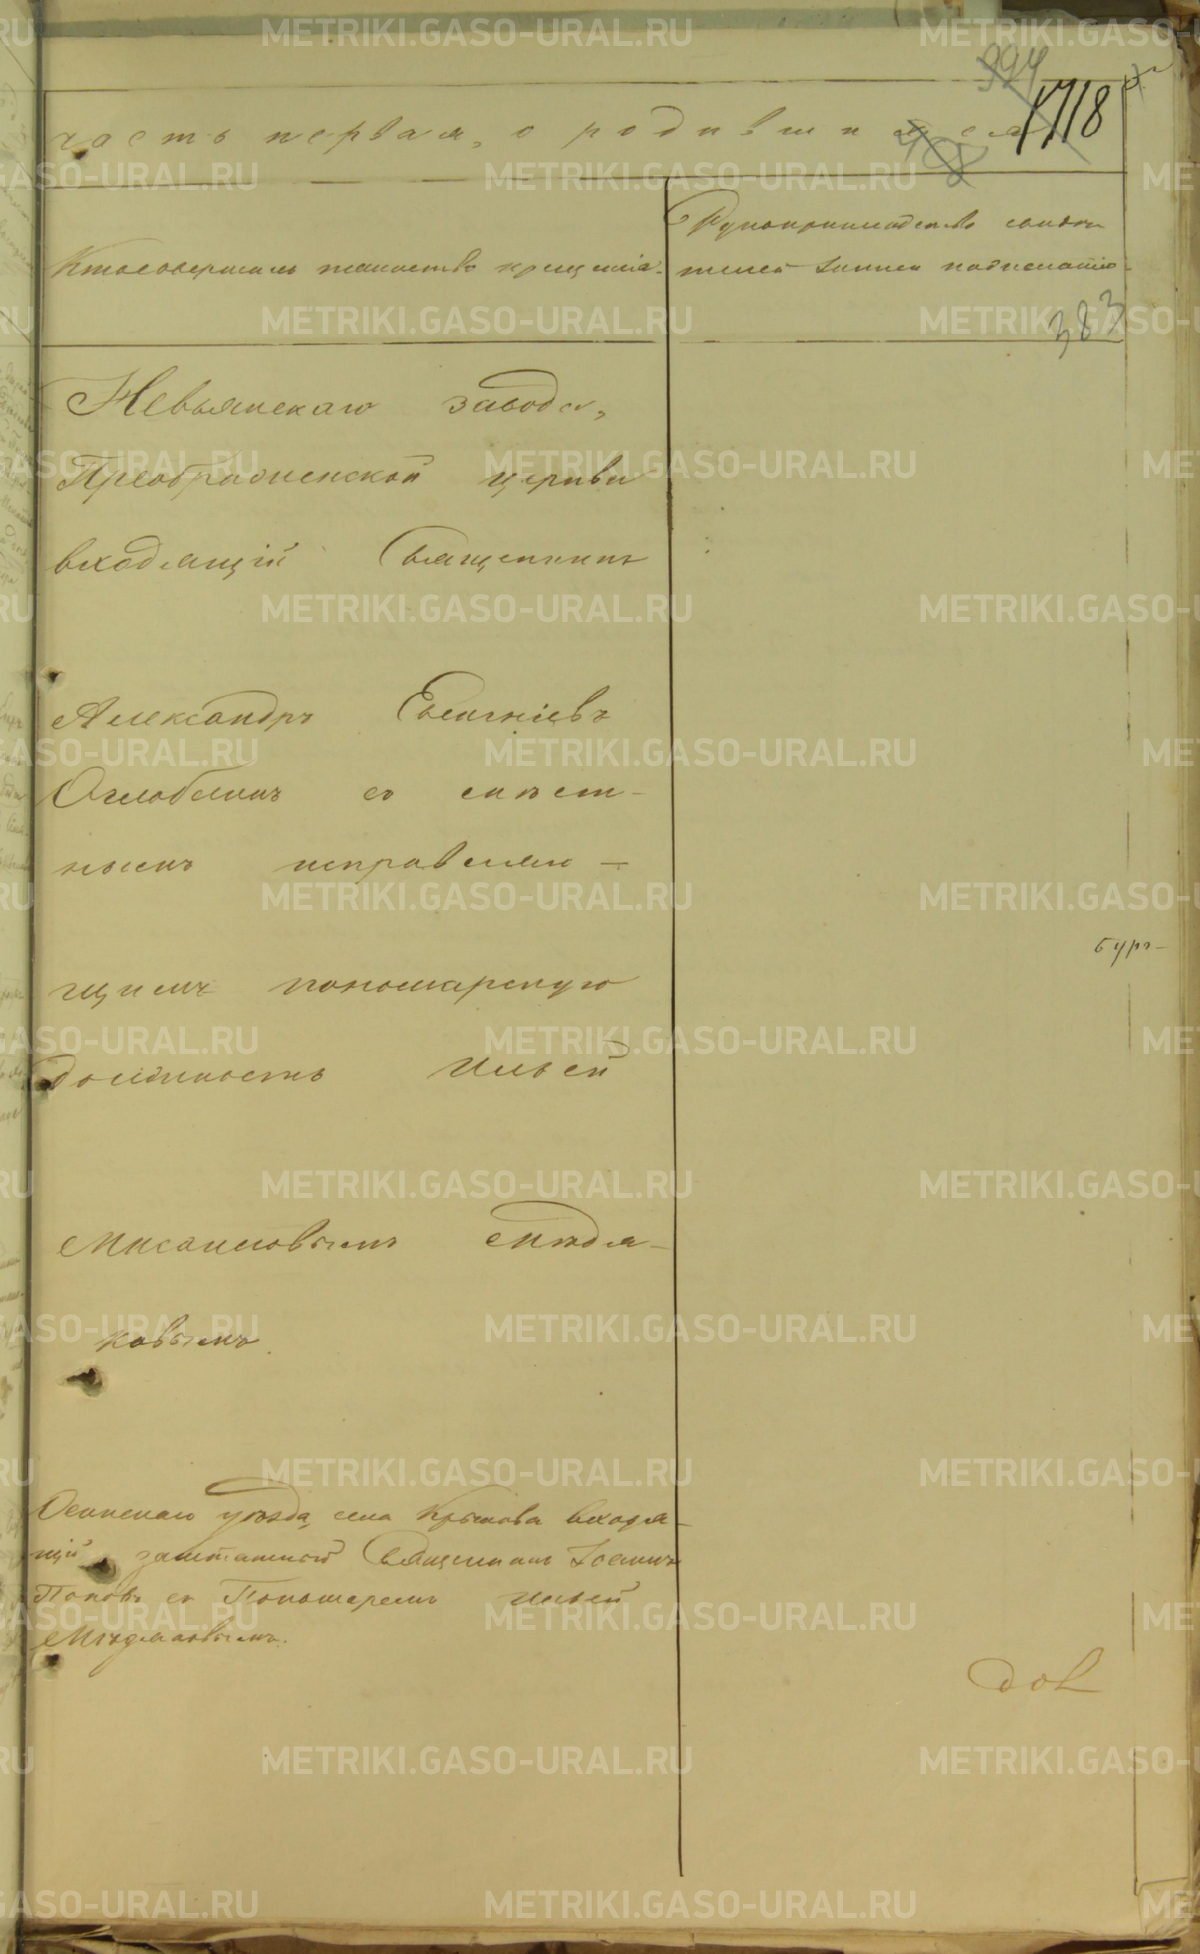 394
1718
часть первая, о родившихся
408
Кто совершалъ таинство крещенія.
Рукоприкладство свидѣ-
телей записи по желанію.
383
Невьянскаго завода,
Преображенской церкви
входящій Священникъ
Александръ Евгеніевъ
Оглоблинъ со
нымъ исправляю-
щимъ пономарскую
должность Ильей
Михайловымъ
ковымъ.
Осинскаго уѣзда, села Крылова входя-
щій заштатной Священникъ Іоаннъ
Поповъ съ Пономаремъ Ильей
бург-
дов
METRIKI.GASO-URAL.RU